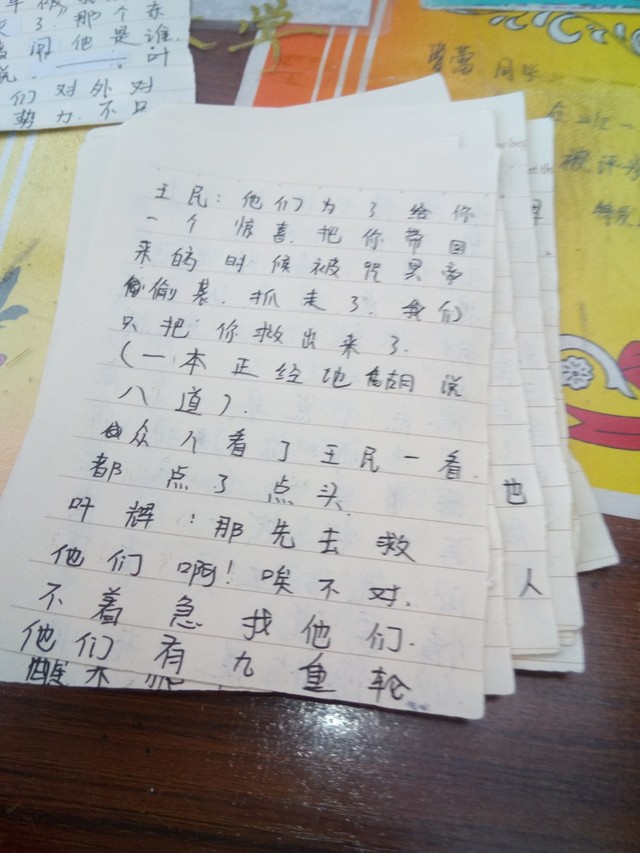 了》那个东
他是谁.
叶
们对外对
势力.不只
同学
在
一
被评为
特
王民:他们为了给你
一个惊喜.把你带回
来的时候被咒界帝
偷袭.抓走了.我们
只把你救出来了.
(一本正经地胡说
八道).
众人看了王民一看.
都点了点头.
叶辉:那先去救
他们啊!唉不对.
不着急找他们.
他们有九重轮
也
人